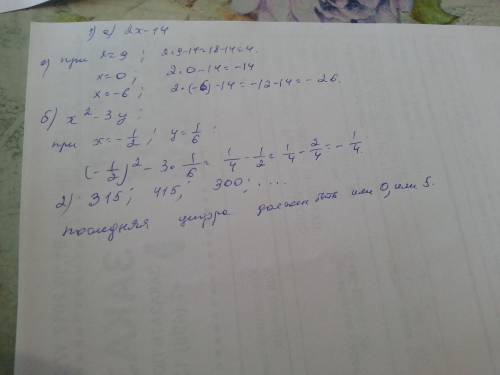 1) а) 2x-14
а) при x=9; 2·9-14=18-14=4.
x=0, 2·0-14=-14
x=-6; 2·(-6)-14=-12-14=-26.
б) x²-3y:
при x=-1/2; y=1/6:
(-1/2)²-3·1/6=1/4-1/2=1/4-2/4=-1/4.
2) 315; 415; 300; ....
последняя цифра должен быть или 0, или 5.